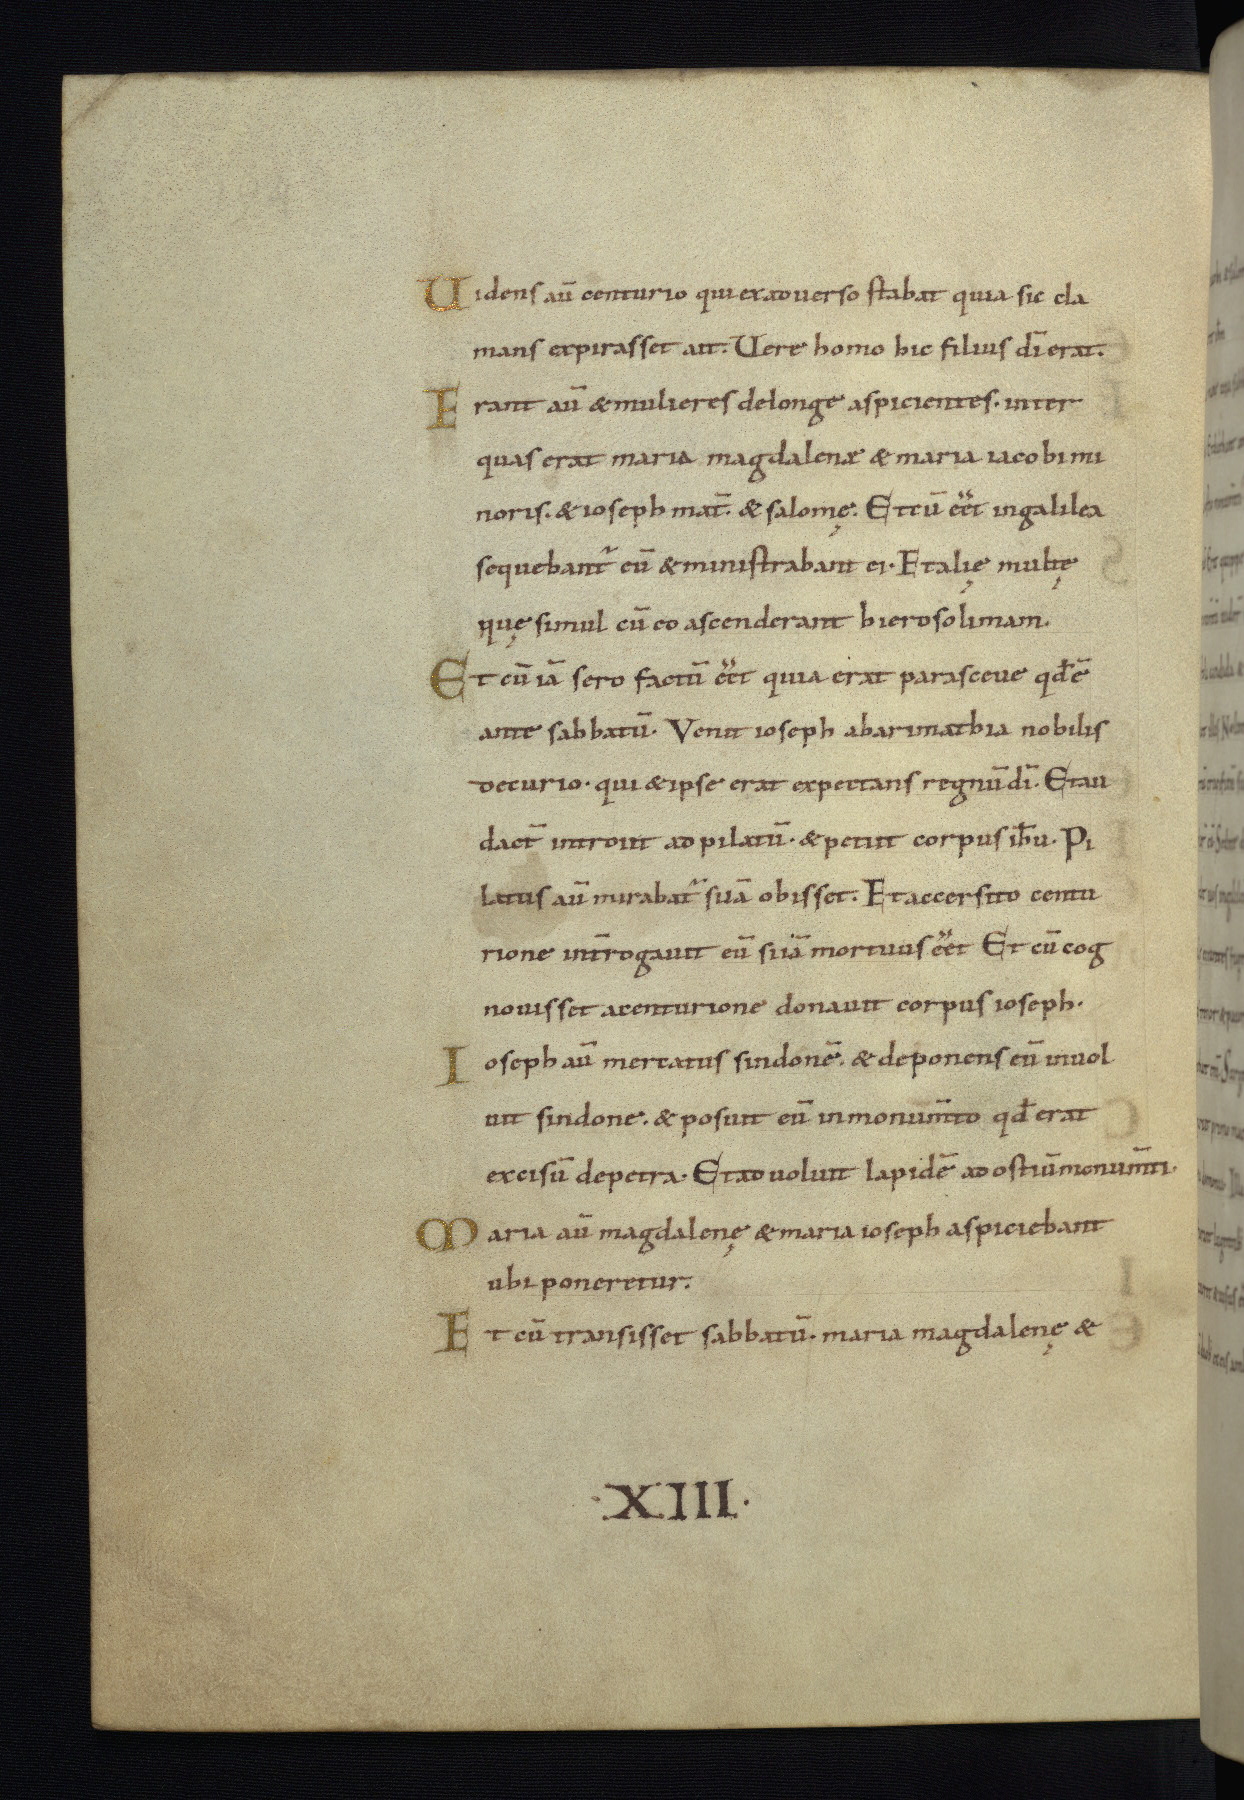 Uidens aū centurio qui exaduerso stabat quia sic cla
mans expirasset ait. Uere homo hic filius dī erat.
Erant aū & mulieres delonge aspicientes. inter
quas erat maria magdalenæ & maria iacobi mi
noris. & ioseph mat̄. & salomę. Et cū eēt ingalilea
sequebant᷑ eū & ministrabant ei. Et alię multę
quę simul cū eo ascenderant hierosolimam.
Et cū iā sero factū eēt quia erat parasceue qđ ē
ante sabbatū. Venit ioseph abarimathia nobilis
decurio. qui & ipse erat expectans regnū dī. Et au
dact̄ introiit ad pilatū. & petiit corpus ih̄u. Pi
latus aū mirabat᷑ si iā obisset. Et accersito centu
rione int̄rogauit eū si iā mortuus eēt Et cū cog
nouisset acenturione donauit corpus ioseph.
Ioseph aū mercatus sindonē. & deponens eū inuol
uit sindone. & posuit eū in monum̄to qđ erat
excisū de petra. Et aduoluit lapidē ad ostiū monum̄ti.
Maria aū magdalenę & maria ioseph aspiciebant
ubi poneretur.
Et cū transisset sabbatū. maria magdalenę &
.XIII.